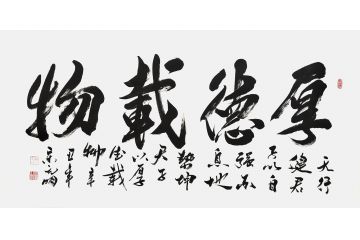 厚德載物
天行
健君
子以自
强不
息地
勢坤
君子
以厚
德載
物辛
丑年